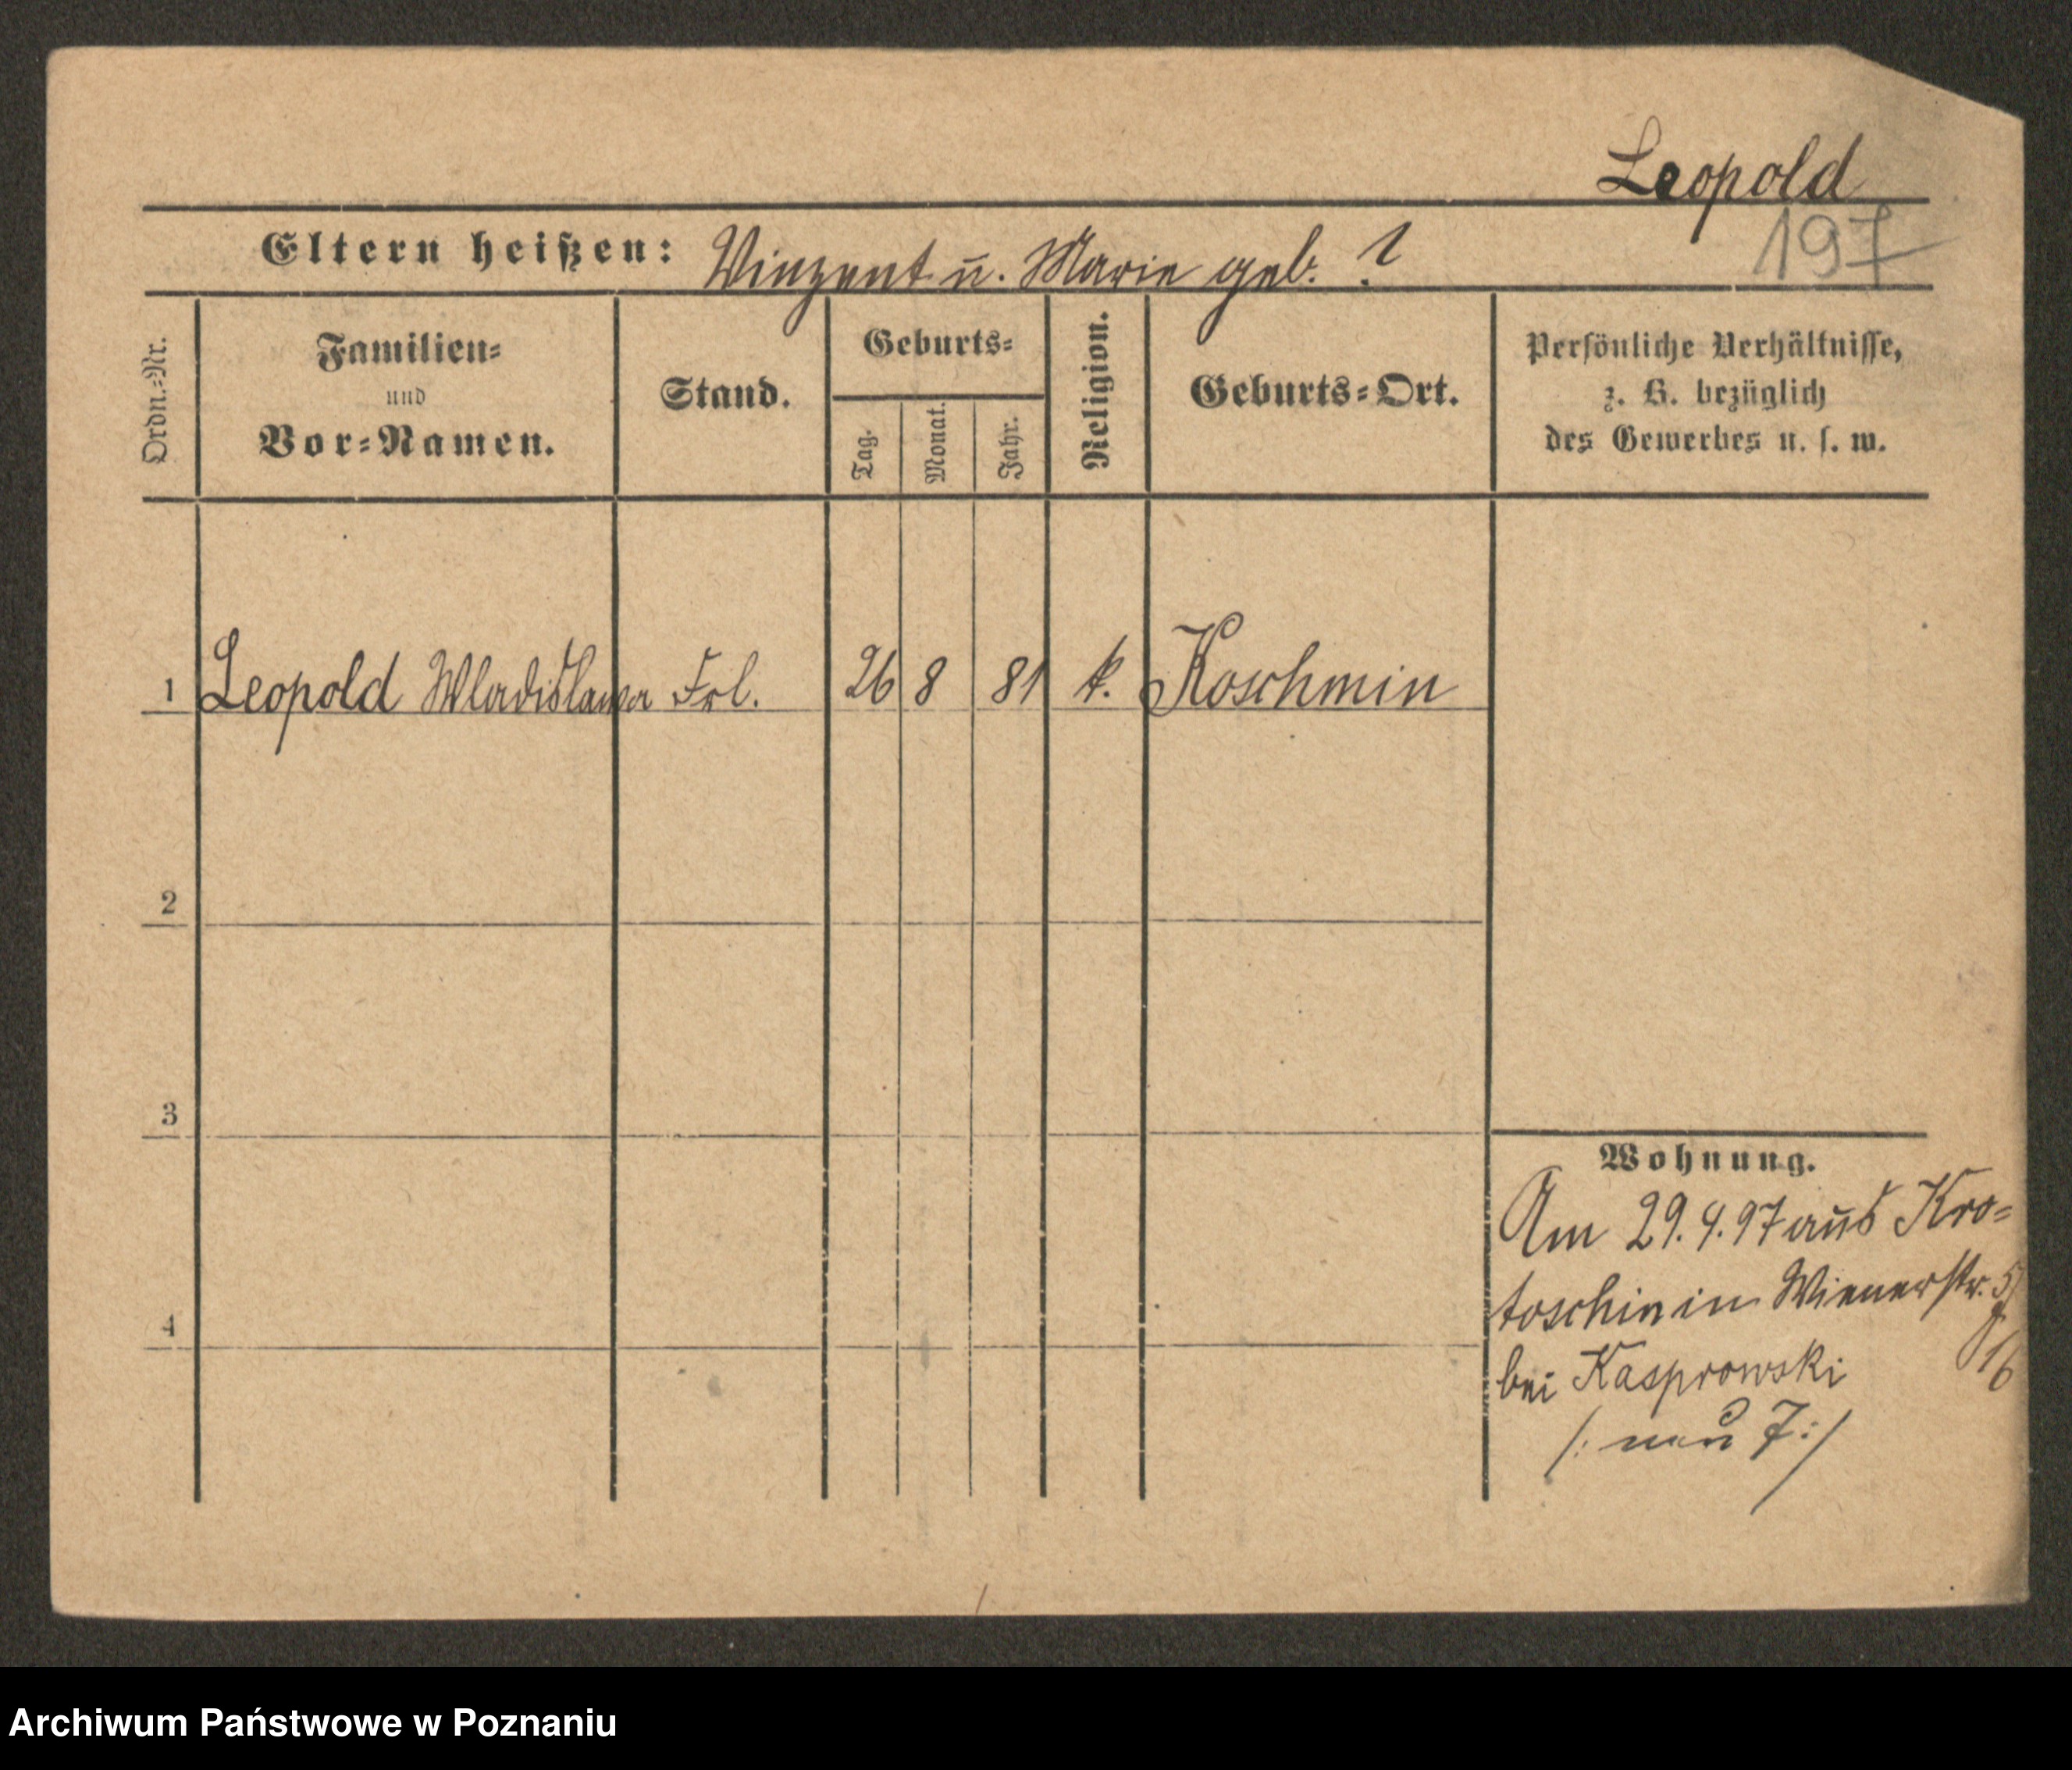 Leopold
197
Eltern heißen: Vinzent u. Marie geb. ?
Ordn.=Nr.
Familien=
und
Vor=Namen.
Stand.
Geburts=
Tag.
Monat.
Jahr.
Religion.
Geburts=Ort.
Persönliche Verhältnisse,
z. B. bezüglich
des Gewerbes u. s. w.
1 Leopold Wladislawa Frl. 26 8 81 k. Koschmin
2
3
4
Wohnung.
Am 29.4.97 aus Kro=
toschin in Wienerstr. 5/
bei Kasprowski 16
/: neu 7 :/
Archiwum Państwowe w Poznaniu